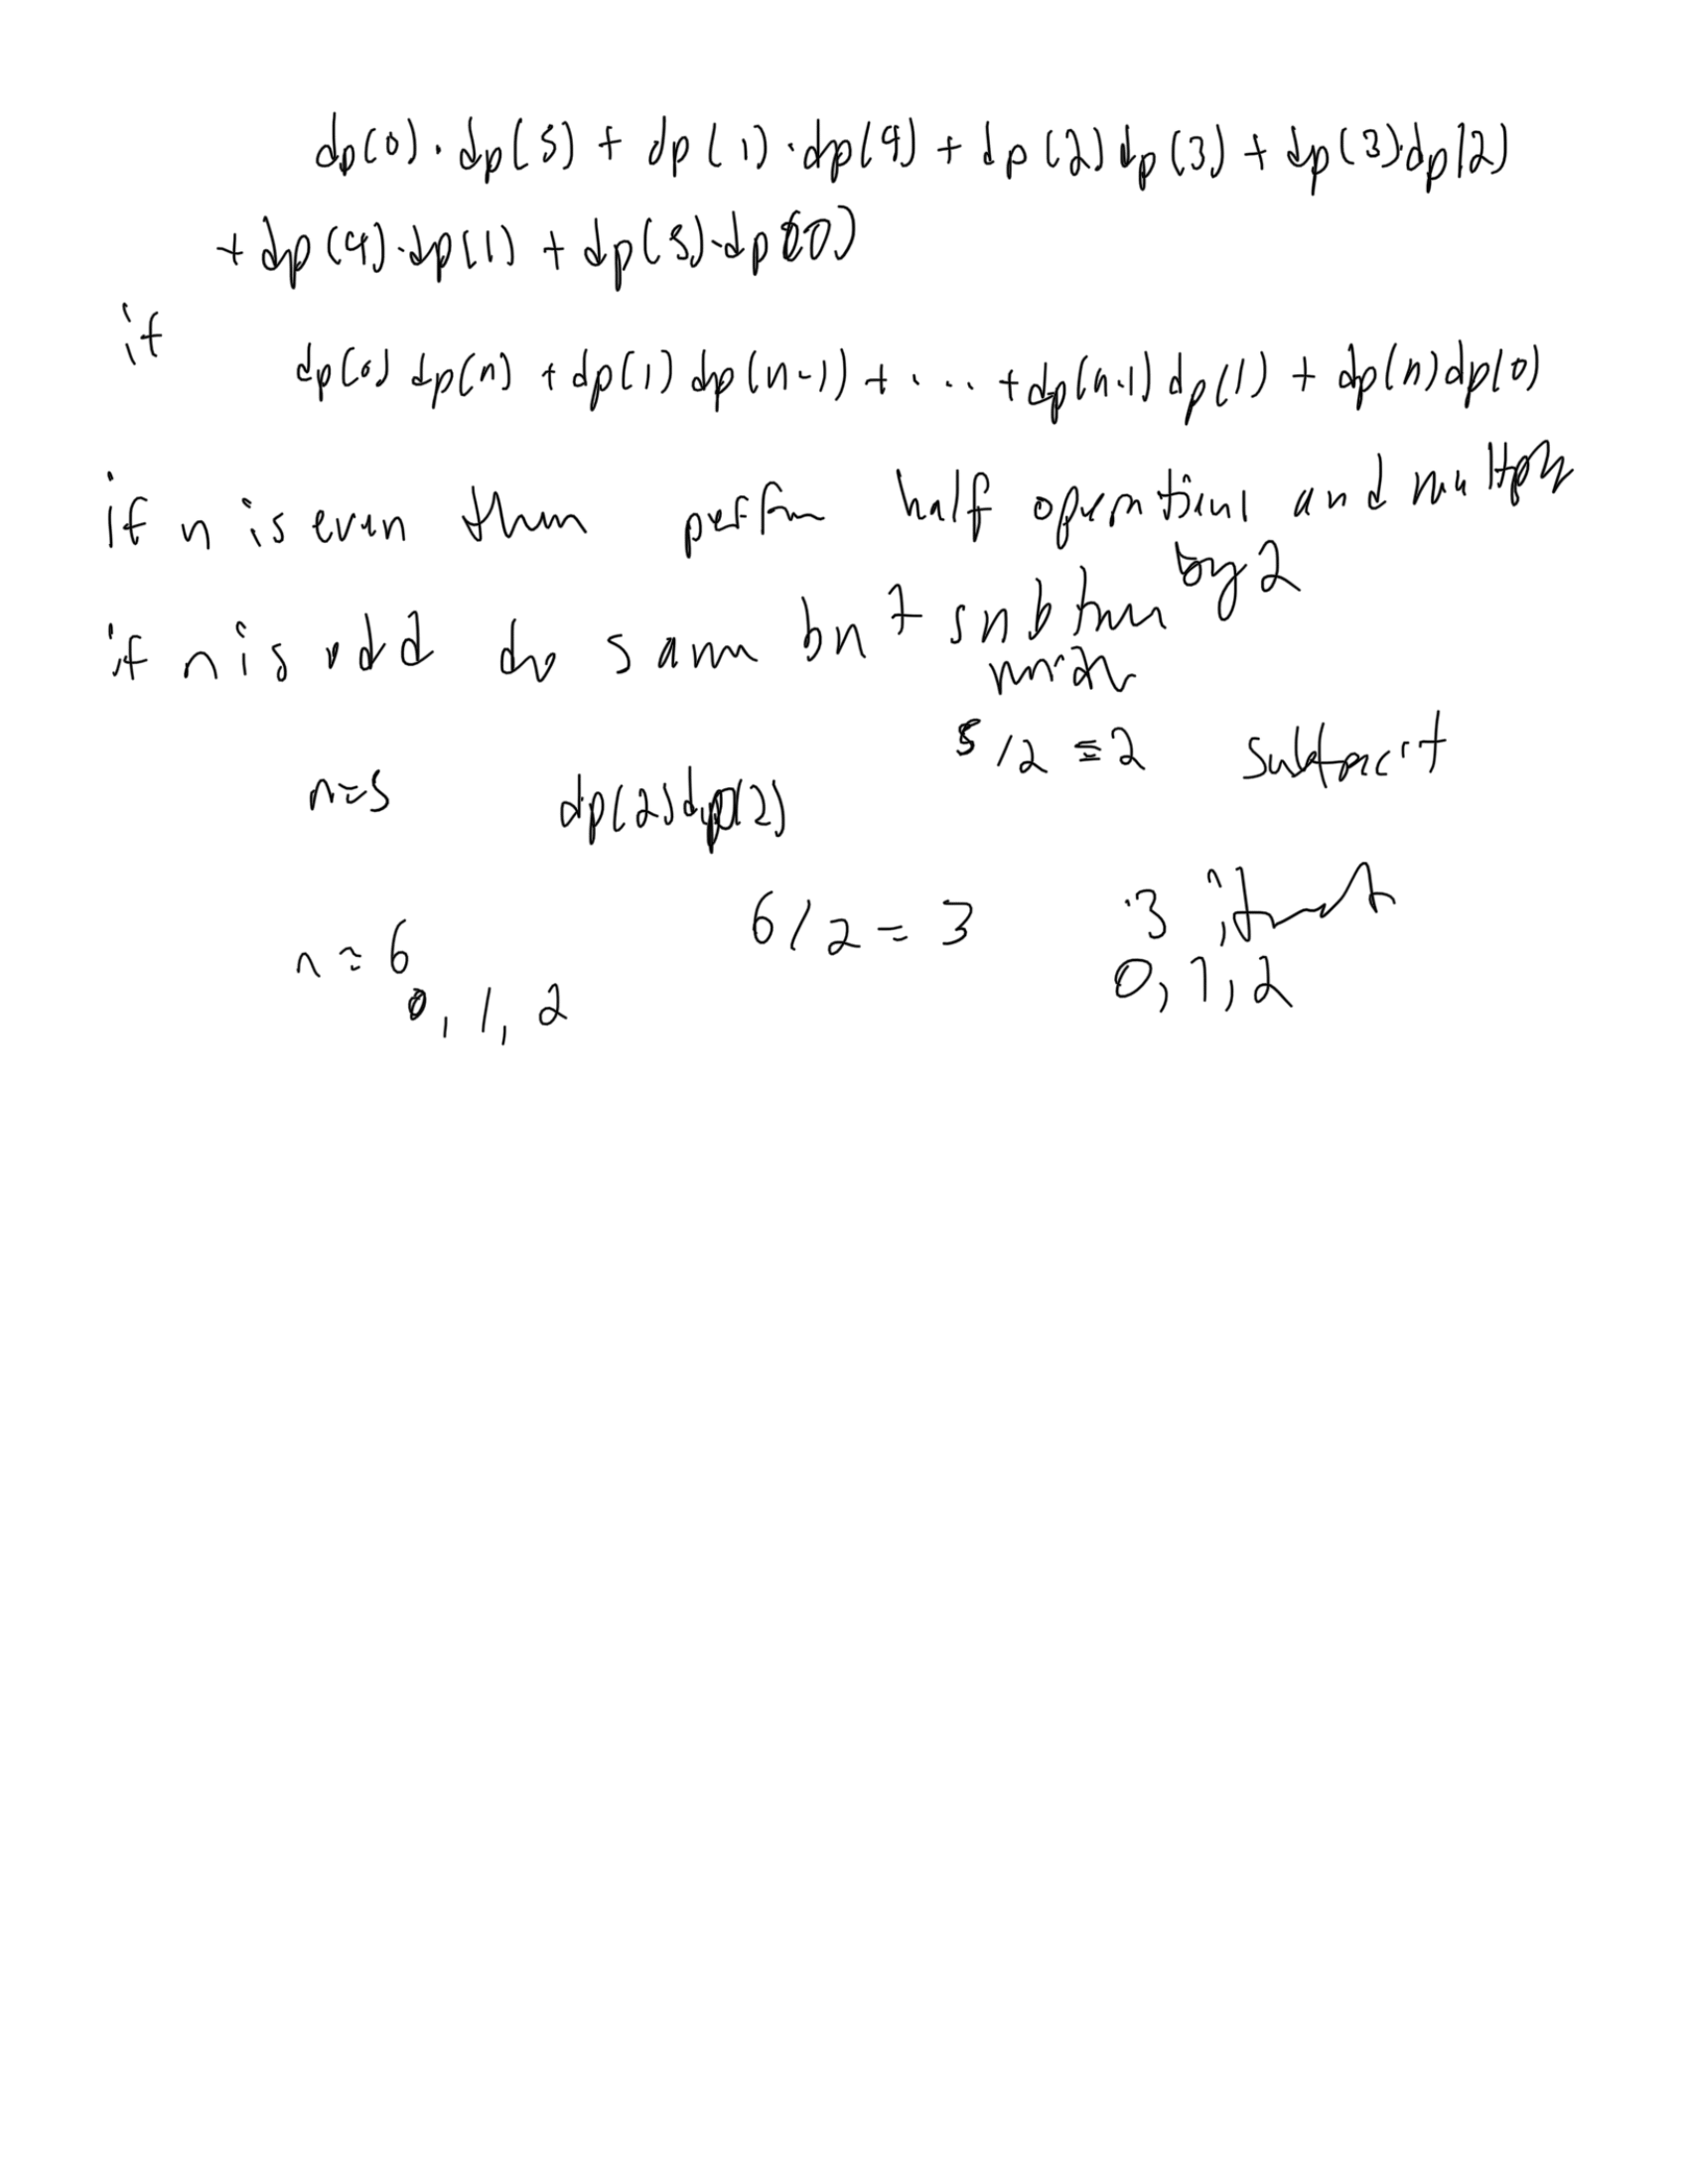 dp(0)·dp(5) + dp(1)·dp(4) + dp(2)dp(3) + dp(3)·dp(2)
+ dp(4)·dp(1) + dp(5)·dp(0)
if
dp(0) dp(n) + dp(1) dp(n-1) + .... + dp(n-1) dp(1) + dp(n) dp(0)
if n is even then perform half operations and multiply
by 2
if n is odd do same but
middle
5/2 = 2 subtract
n=5 dp(2)dp(2)
6/2 = 3 3
n=6
0, 1, 2 0, 1, 2